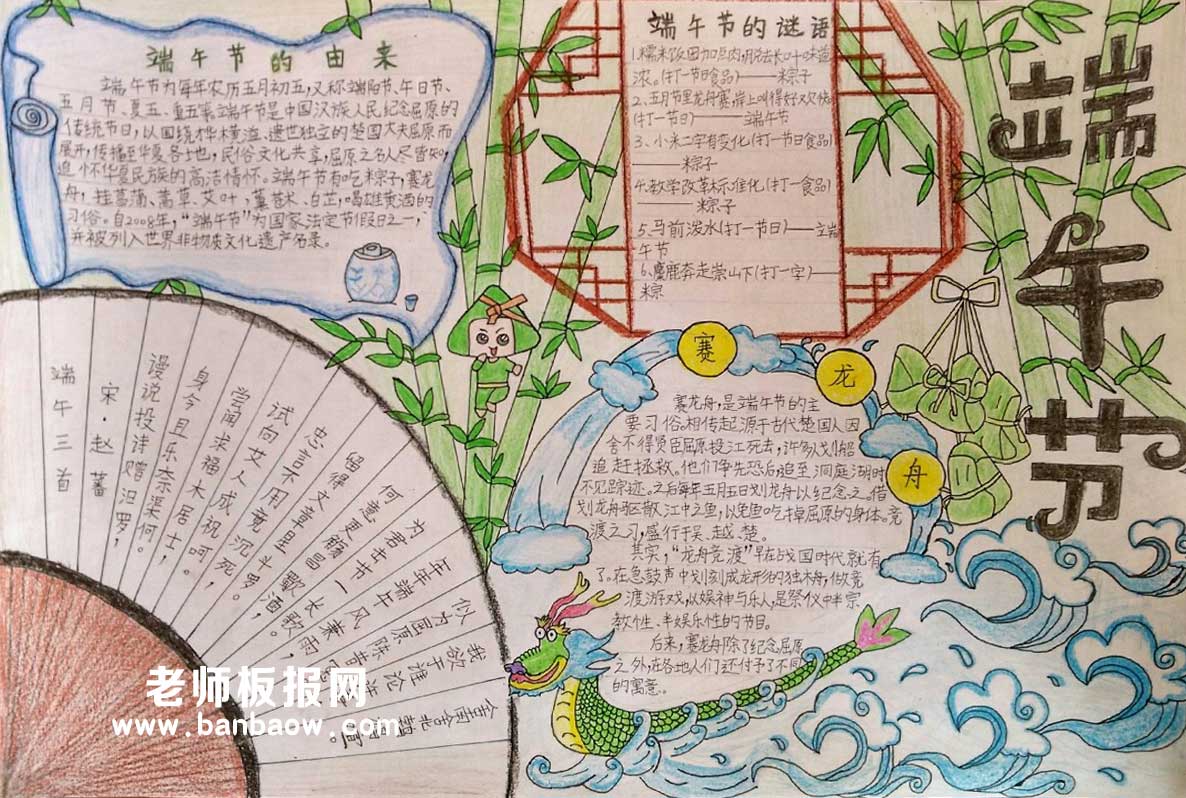 端午节的由来
端午节为每年农历五月初五,又称端阳节、午日节、
五月节、夏五、重五等,端午节是中国汉族人民纪念屈原的
传统节日,以围绕才华横溢、遗世独立的楚国大夫屈原而
展开,传播至华夏各地,民俗文化共享,屈原之名人尽皆知,
追怀华夏民族的高洁情怀。端午节有吃粽子,赛龙
舟,挂菖蒲、蒿草、艾叶,薰苍术、白芷,喝雄黄酒的
习俗。自2008年,“端午节”为国家法定节假日之一,
并被列入世界非物质文化遗产名录。
端午节的谜语
1.糯米饭团加点肉,脱去长叶味道
浓。(打一节日食品)——粽子
2、五月节里龙舟赛,岸上叫得好欢快
(打一节日)——端午节
3、小米二字有变化(打一节日食品)
——粽子
4.教学改革标准化(打一食品)
——粽子
5、马前泼水(打一节日)——端
午节
6、麋鹿奔走崇山下(打一字)——
粽
端午节
端午三首
宋·赵蕃
谩说投诗赠汨罗,
身今且乐奈渠何。
尝闻求福木居士,
试向艾人成祝呵。
忠言不用竟沉死,
留得文章星斗罗。
何意更觞昌歜酒,
为君击节一长歌。
年年端午风兼雨,
似为屈原陈昔冤。
我欲于谁论
赛龙舟
赛龙舟,是端午节的主
要习俗。相传起源于古代楚国人因
舍不得贤臣屈原投江死去,许多人划船
追赶拯救。他们争先恐后,追至洞庭湖时
不见踪迹。之后每年五月五日划龙舟以纪念之。借
划龙舟驱散江中之鱼,以免鱼吃掉屈原的身体。竞
渡之习,盛行于吴、越、楚。
其实,“龙舟竞渡”早在战国时代就有
了。在急鼓声中划刻成龙形的独木舟,做竞
渡游戏,以娱神与乐人,是祭仪中半宗
教性、半娱乐性的节目。
后来,赛龙舟除了纪念屈原
之外,在各地人们还付予了不同
的寓意。
老师板报网
www.banbaow.com